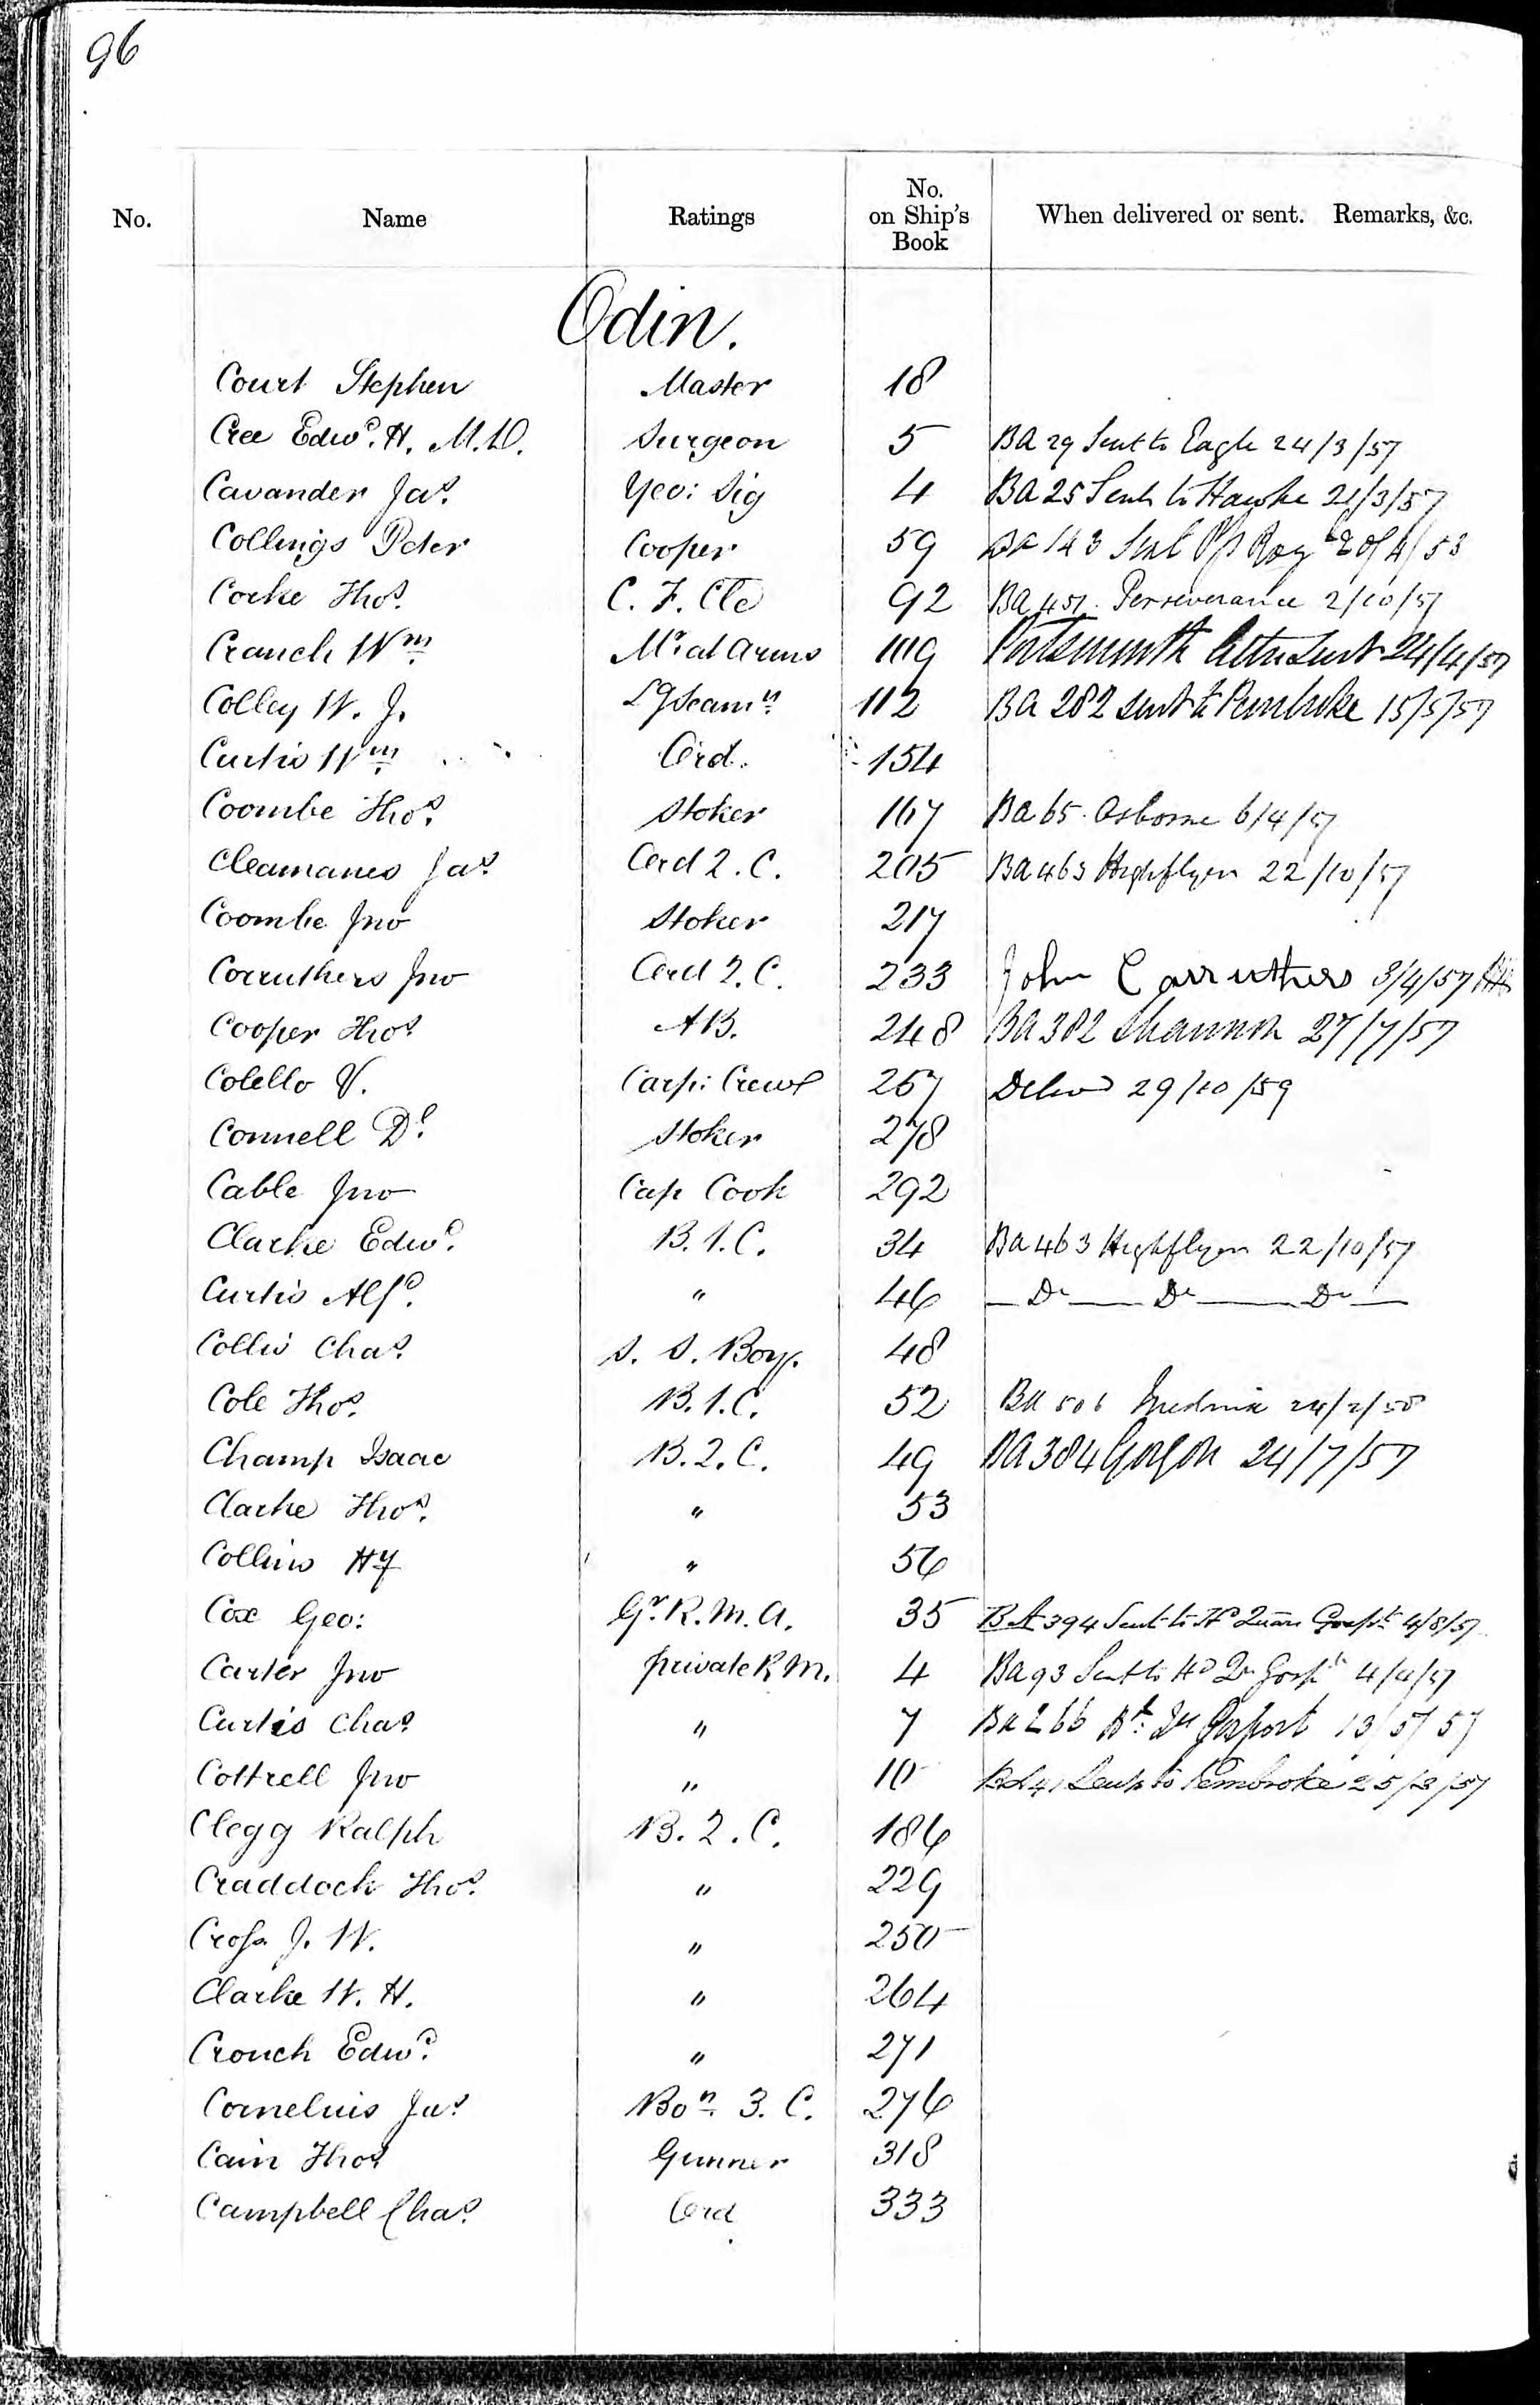 96
No. Name Ratings No. on Ship's Book When delivered or sent. Remarks, &c.
Odin.
Court Stephen Master 18
Cree Edwd. H. M.D. Surgeon 5 BA 29 Sent to Eagle 24/3/57
Cavander Jas. Yeo: Sig 4 BA 25 Sent to Hawke 21/3/57
Collings Peter Cooper 59 BA 143 Sent 20/4/53
Corke Thos. C. F. Cle 92 BA 451. Perseverance 2/10/57
Cranch Wm Mr at Arms 109 Portsmouth Sent 24/4/57
Colley W. J. Lg Seamn. 112 BA 282 sent to Pembroke 15/5/57
Curtis Wm Ord. 154
Coombe Thos. Stoker 167 Ba 65. Osborne 6/4/57
Cleamanes Jas Ord 2. C. 205 Ba 463 Highflyer 22/10/57
Coombe Jno Stoker 217
Corruthers Jno Ord 2. C. 233 John Carruthers 3/4/57
Cooper Thos AB. 248 BA 382 Shannon 27/7/57
Colello V. Carp: Crew 267 Delivd 29/10/59
Connell Dl. Stoker 278
Cable Jno Cap Cook 292
Clarke Edwd. B. 1. C. 34 Ba 463 Highflyer 22/10/57
Curtis Alfd. " 46 — Do — Do — Do —
Collis Chas. S. S. Boy. 48
Cole Thos. B. 1. C. 52 BA 506 24/2/58
Champ Isaac B. 2. C. 49 BA 384 Gorgon 24/7/57
Clarke Thos. " 53
Collins Hy " 56
Cox Geo: Gr. R. M. A. 35 BA 394 Sent to Hd Quars Gosport 4/8/57
Carter Jno private R M. 4 Ba 93 Sent to Hd Qr Gospt 4/4/57
Curtis Chas " 7 Ba 266 Gosport 13/5/57
Cottrell Jno " 10 BA 41 Sent to Pembroke 25/3/57
Clegg Ralph B. 2. C. 186
Craddock Thos. " 229
Cross J. W. " 250
Clarke W. H. " 264
Crouch Edwd. " 271
Cornelius Jas Bon. 3. C. 276
Cain Thos Gunner 318
Campbell Chas. Ord 333